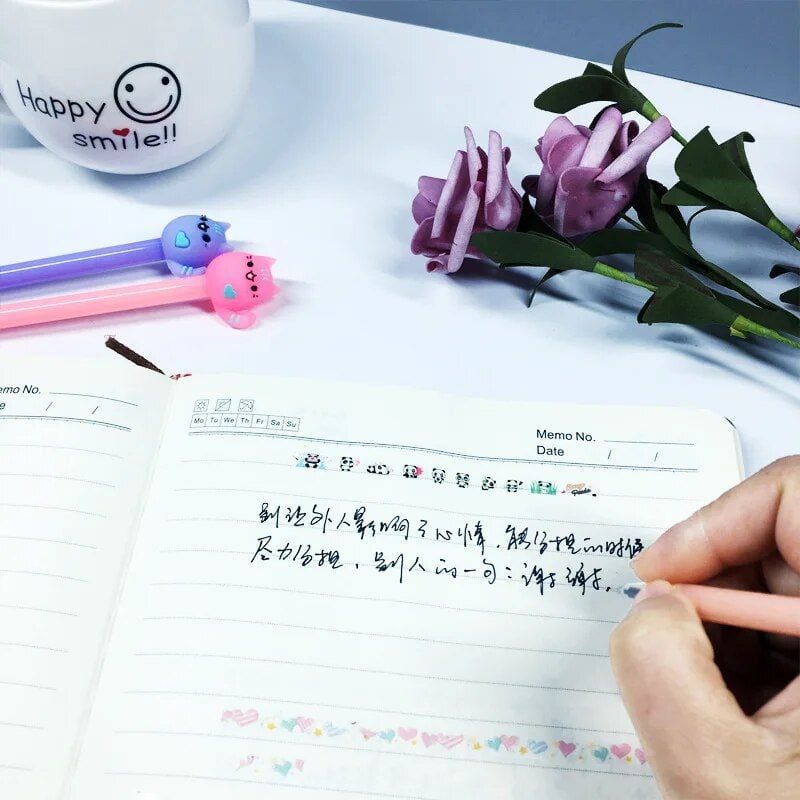 Happy
smile!!
Memo No.
Mo Tu We Th Fr Sa Su
Memo No.
Date / /
别让外人影响了心情，能分担的时候
尽力分担，别人的一句：谢谢谢。